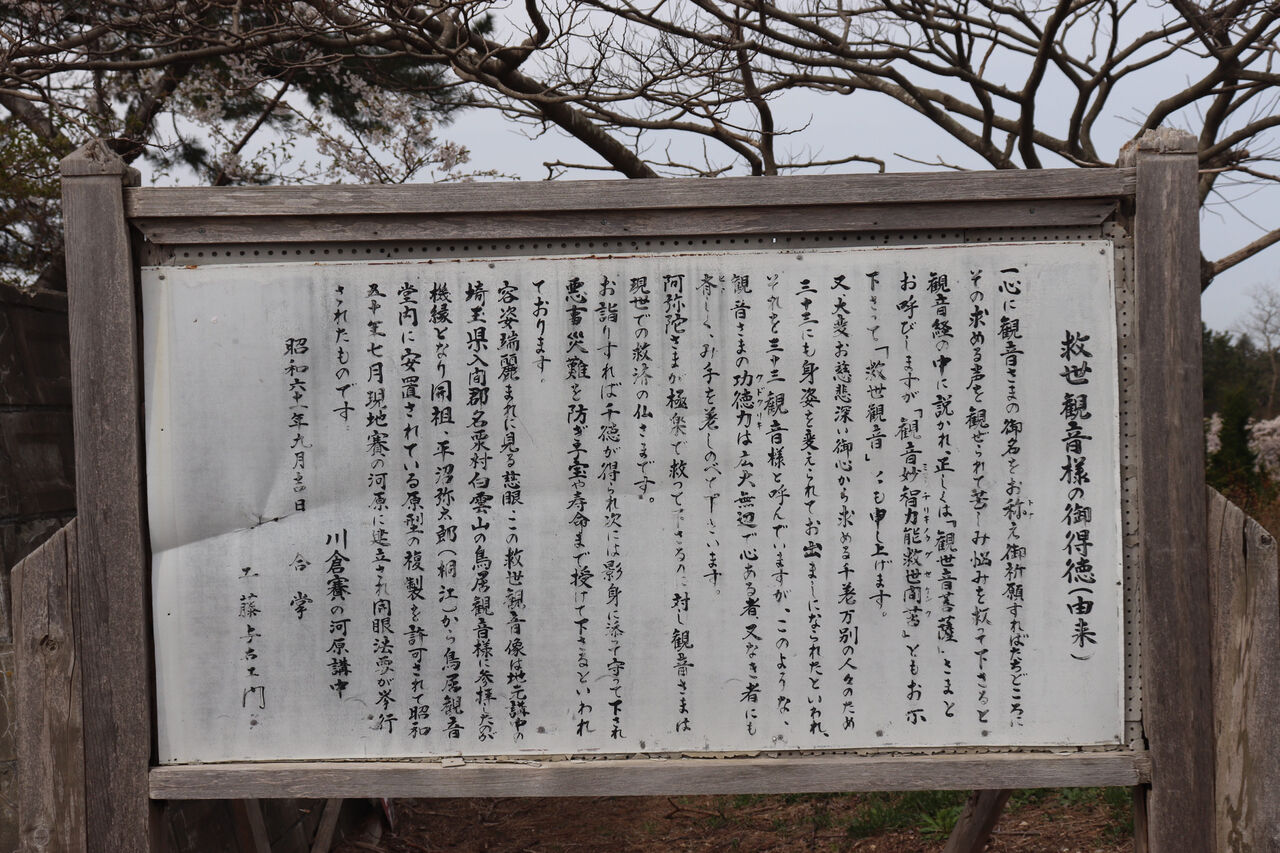 救世観音様の御得徳(由来)
一心に観音さまの御名をお称え御祈願すればたちどころに
トナ
その求める声を観ぜられて苦しみ悩みを救って下さると
観音経の中に説かれ、正しくは「観世音菩薩」さまと
お呼びしますが「観音妙智力能救世間苦」ともお示
ミョウチリキノウグセケンク
下さって「救世観音」とも申し上げます。
又大変お慈悲深い御心から求める千差万別の人々のため
三十三にも身姿を変えられてお出ましになられたといわれ、
それを三十三観音様と呼んでいますが、このような、
観音さまの功徳力は広大無辺で心ある者、又なき者にも
クドクリキ
斉しく、み手を差しのべて下さいます。
ヒト
阿弥陀さまが極楽で救って下さるのに対し観音さまは
現世での救済の仏さまです。
お詣りすれば千徳が得られ次には影身に添て守って下され
悪害災難を防ぎ子宝や寿命まで授けて下さるといわれ
ております。
容姿瑞麗まれに見る慈眼、この救世観音像は地元講中の
埼玉県入間郡名栗村白雲山の鳥居観音様に参拝したのが
機縁となり開祖、平沼弥太郎(桐江)から鳥居観音
堂内に安置されている原型の複製を許可されて昭和
五十年七月現地賽の河原に建立され開眼法要が挙行
されたものです。
川倉賽の河原講中
昭和六十一年九月吉日 合掌
工藤
門